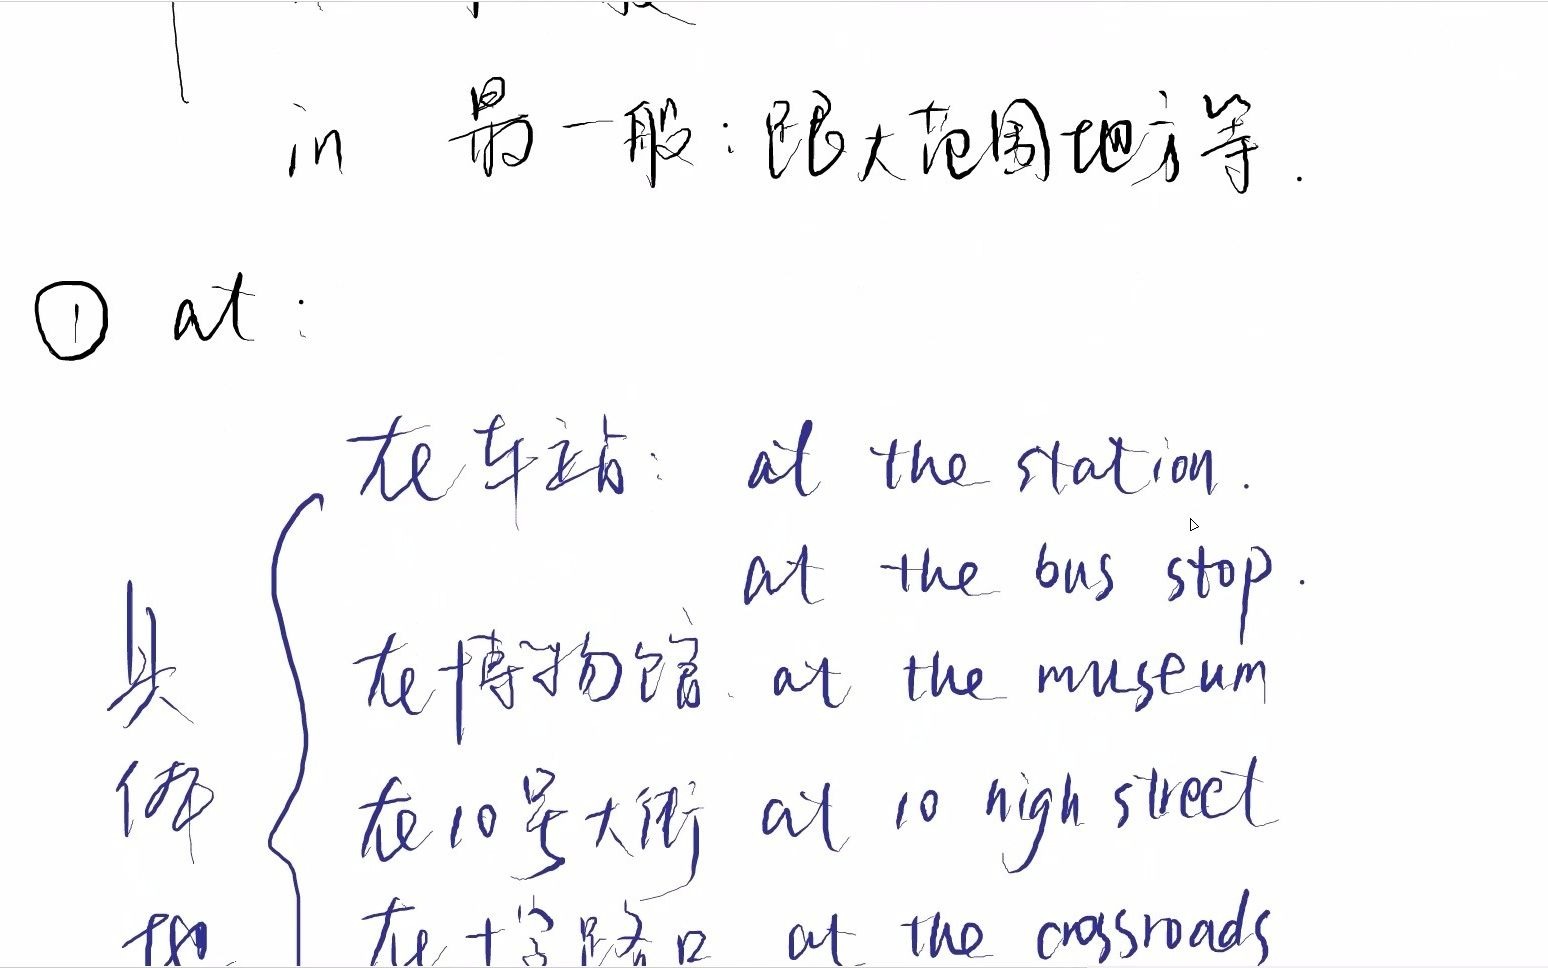 in 最一般：跟大范围地方等.
① at：
在车站： at the station.
at the bus stop.
在博物馆. at the museum
在10号大街 at 10 high street
在十字路口 at the crossroads
具
体
地